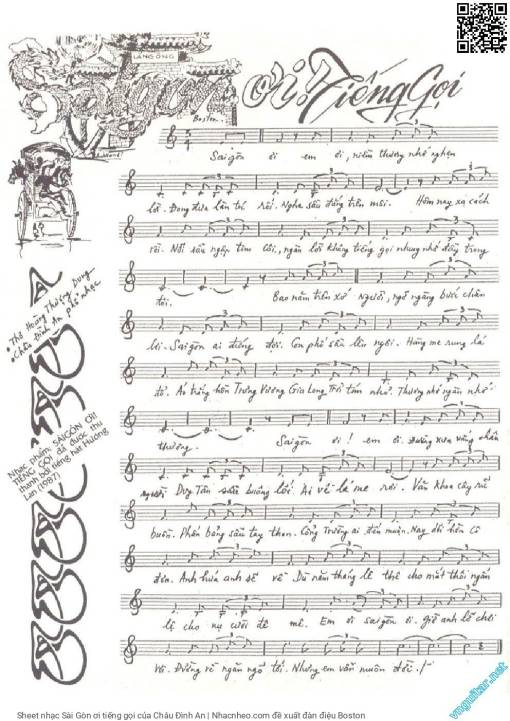 LĂNG ÔNG
Saigon ơi! Tiếng Gọi
Boston.
Thơ Hoàng Thượng Dung
Châu Đình An phổ nhạc
Saigōn ơi em ơi, niềm thương nhớ nghẹn
lời. Đong đưa lần trôi. Nghe sầu đắng trên môi. Hôm nay xa cách
rồi. Nỗi sầu ngập tim côi, ngàn lời không tiếng gọi nhung nhớ đầy trong
tôi. Bao năm trên xứ người, ngỡ ngàng bước chân
Saigōn ai đứng đợi. Con phố sầu lên ngôi. Hàng me rung lá
đổ. Áo trắng hồn Trưng Vương Gia Long Trời tìm nhớ. Thương nhớ ngàn nhớ
thương. Saigōn ơi! em ơi. Đường xưa vắng chân
người Duy Tân sầu buông lối. Ai về lá me rơi. Văn Khoa cây rũ
buồn. Phấn bảng sầu tay than. Cổng Trường ai đến muộn. Nay đổi tên cô
đơn. Anh hứa anh sẽ về Dù năm tháng lê thê cho mắt thôi ngấn
lệ cho nụ cười đê mê. Em ơi saigōn ơi. giờ anh
Đường về ngăn ngõ tối. Nhưng em vẫn muôn đời!
Nhạc phẩm: SAIGÒN ƠI!
TIẾNG GỌI đã được thu
thanh bởi tiếng hát Hương
Lan (1987)
vnguitar.net
Sheet nhạc Sài Gòn ơi tiếng gọi của Châu Đình An | Nhacnheo.com đề xuất đàn điệu Boston